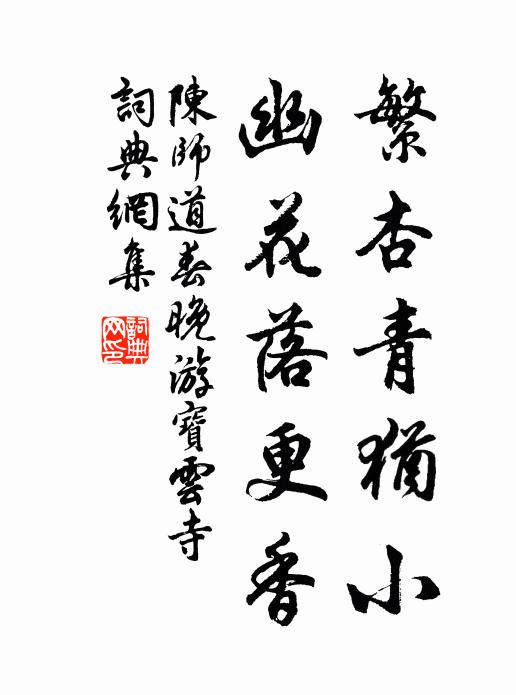 繁杏青猶小
幽花落更香
陳師道春晚游寶雲寺
詞典網集
詞典
网印